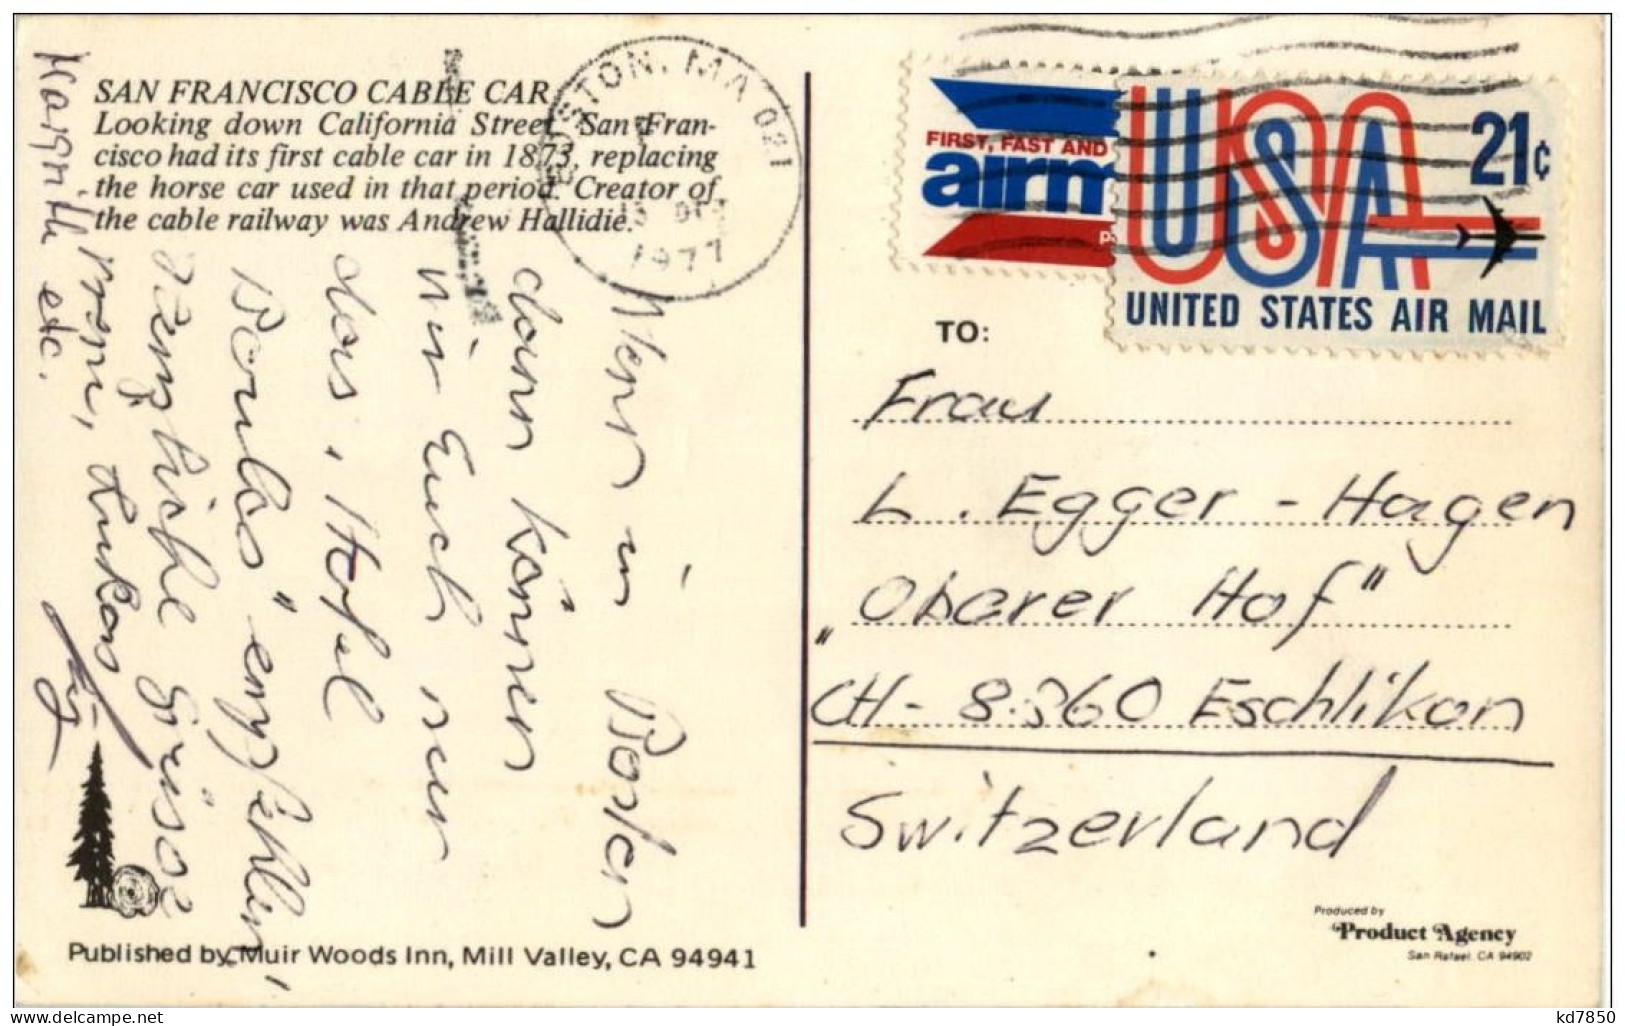 SAN FRANCISCO CABLE CAR
Looking down California Street. San Fran-
cisco had its first cable car in 1873, replacing
the horse car used in that period. Creator of
the cable railway was Andrew Hallidie.
Wenn in Boston
dann können
wir Euch nur
das "Hotel
empfehlen,
Lukas
etc.
Published by Muir Woods Inn, Mill Valley, CA 94941
BOSTON, MA 021
1977
FIRST, FAST AND
airm
USA
21¢
UNITED STATES AIR MAIL
TO:
Frau
L. Egger - Hagen
"Oberer Hof"
CH - 8360 Eschlikon
Switzerland
Produced by
Product Agency
San Rafael, CA 94902
delcampe.net
kd7850